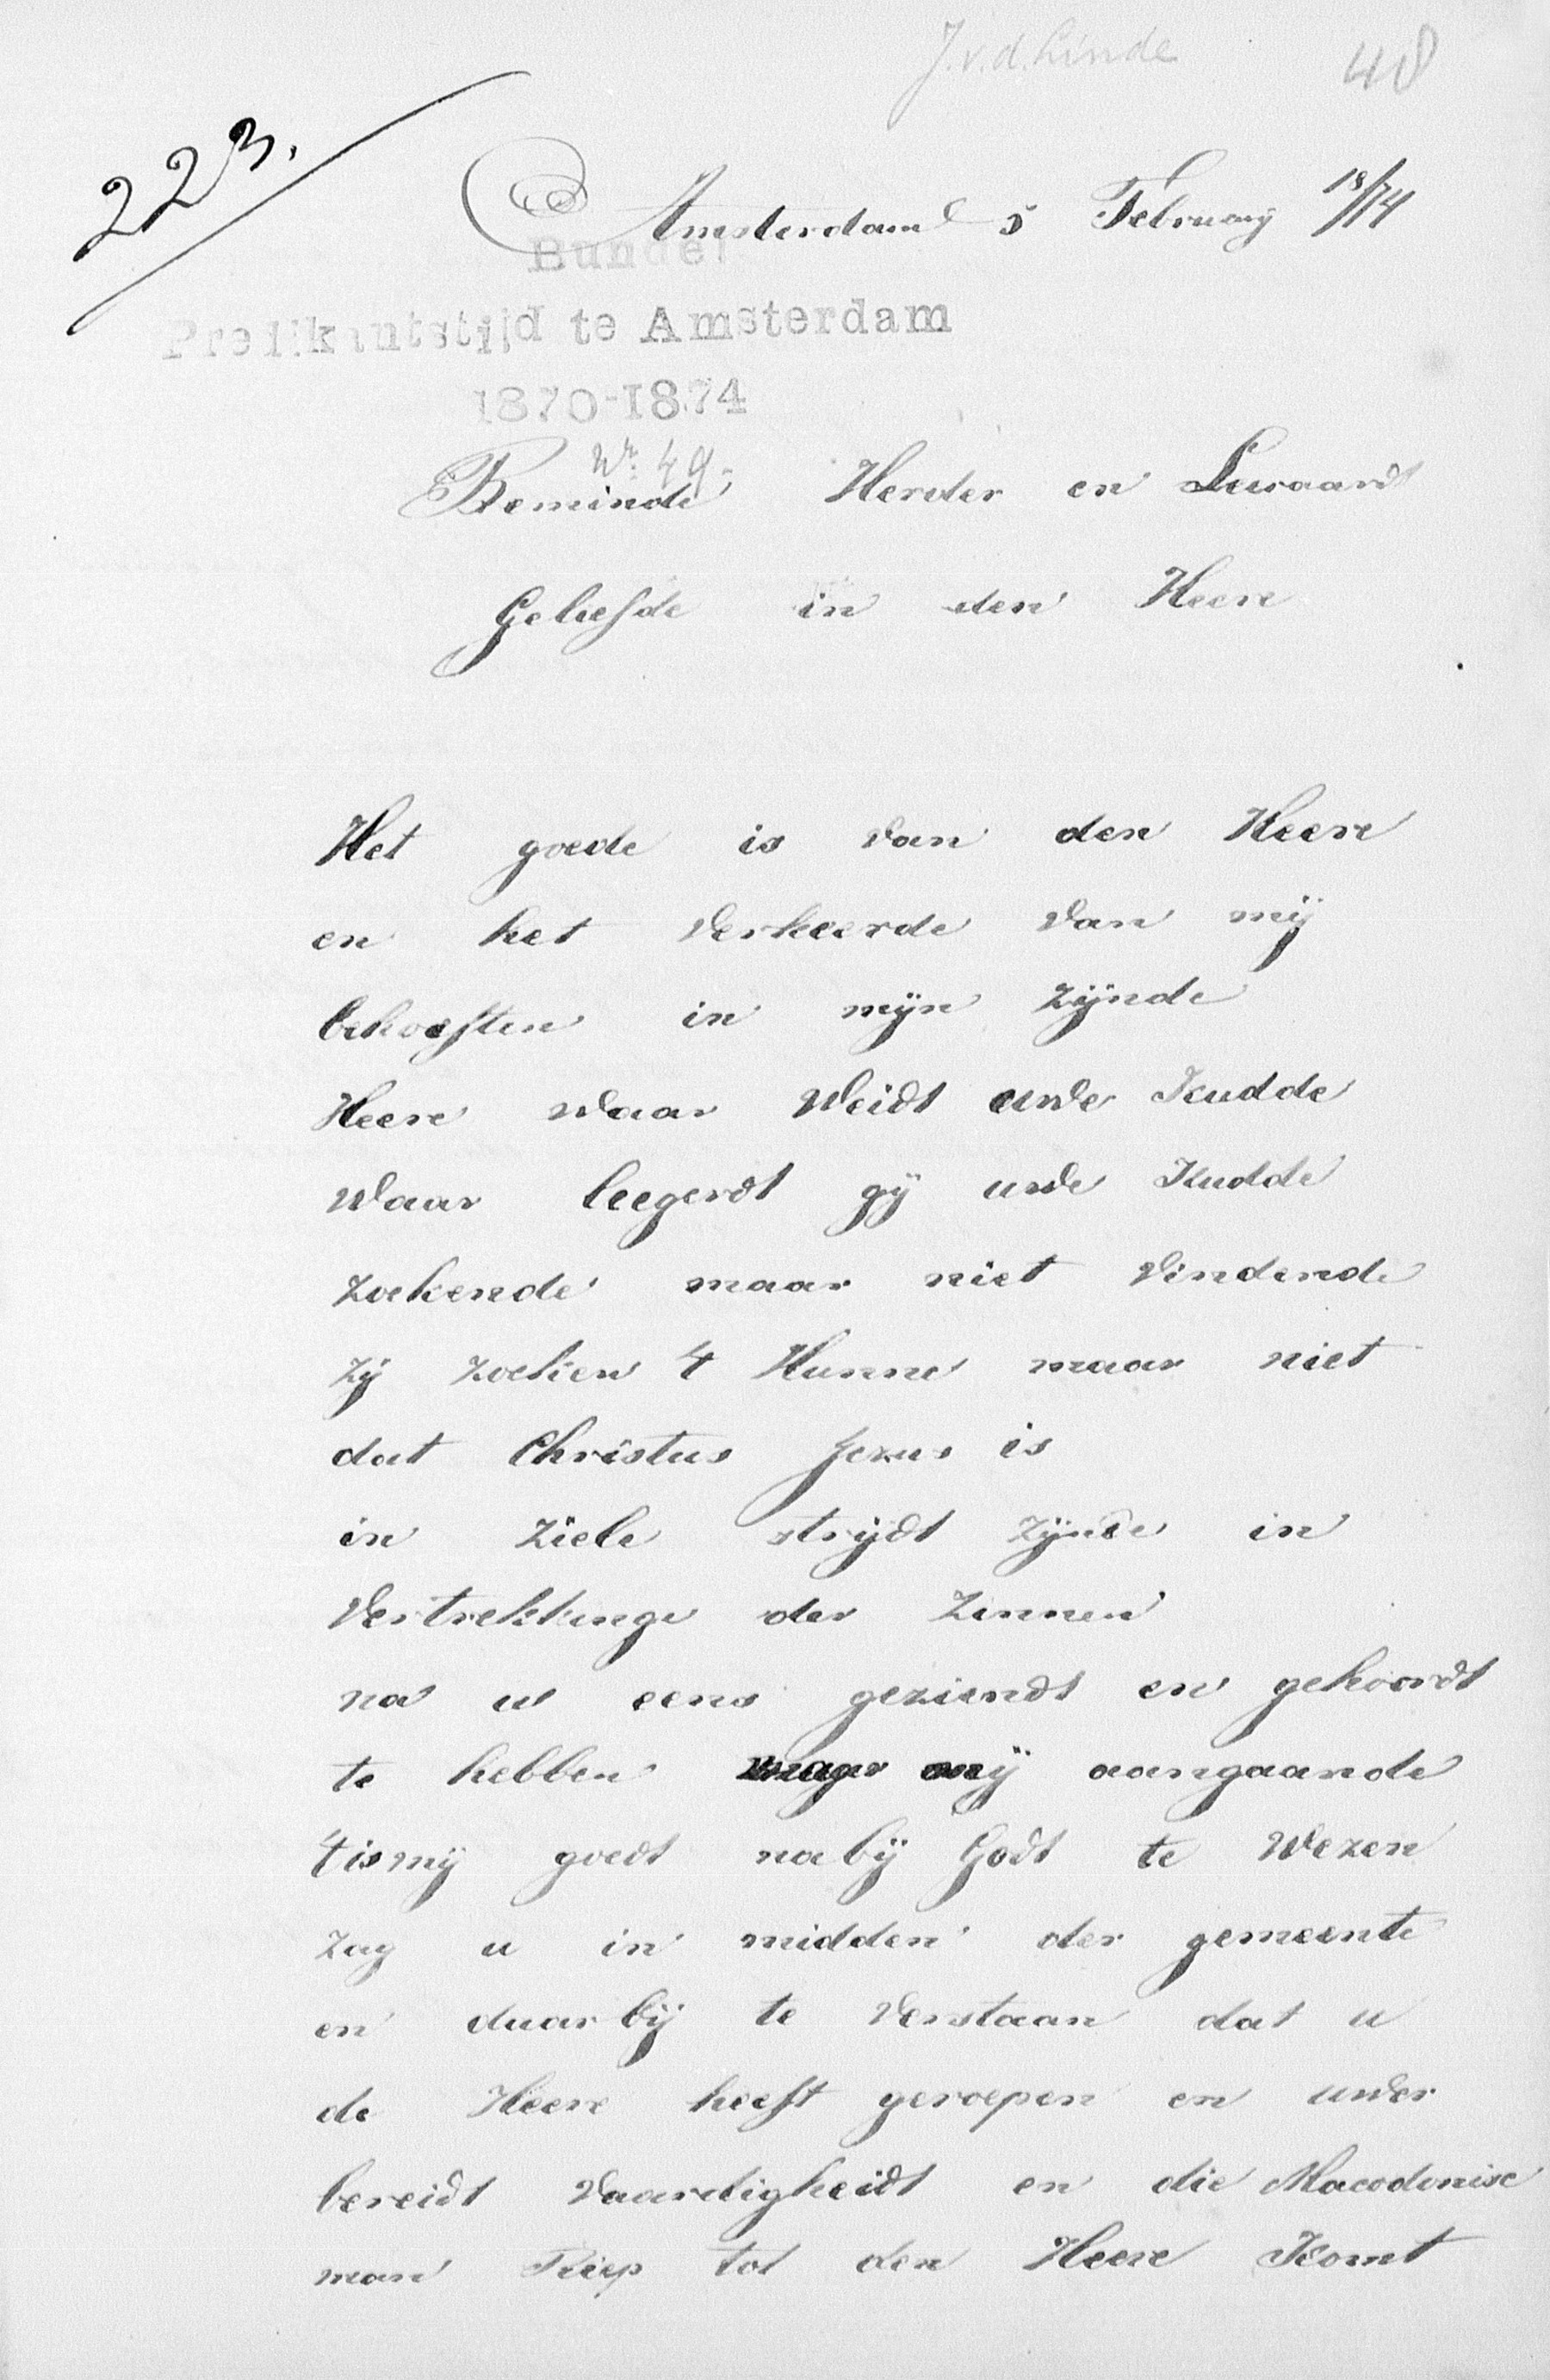 J.v.d. Linde 48
223.
Amsterdam 5 February 18/74
Bundel
Predikantstijd te Amsterdam
1870-1874
Nr. 49.
Beminde Herder en Leeraardt
Geliefde in den Heere
Het goede is van den Heere
en het verkeerde van mij
behoeften in mijn zijnde
Heere waar Weidt uwe Kudde
Waar leegerdt gij uwe Kudde
zoekende maar niet vindende
zij zoeken 4 Hunne maar niet
dat Christus Jezus is
in ziele strijdt zijnde in
Vertrekkinge der Zinnen
na u eens geziendt en gehoordt
te hebben mij aangaande
4 is mij goedt nabij Godt te Wezen
zag u in midden der gemeente
en daar bij te verstaan dat u
de Heere heeft geroepen en uwer
bereidt vaardigheidt en die Macodonise
man Riep tot den Heere Komt